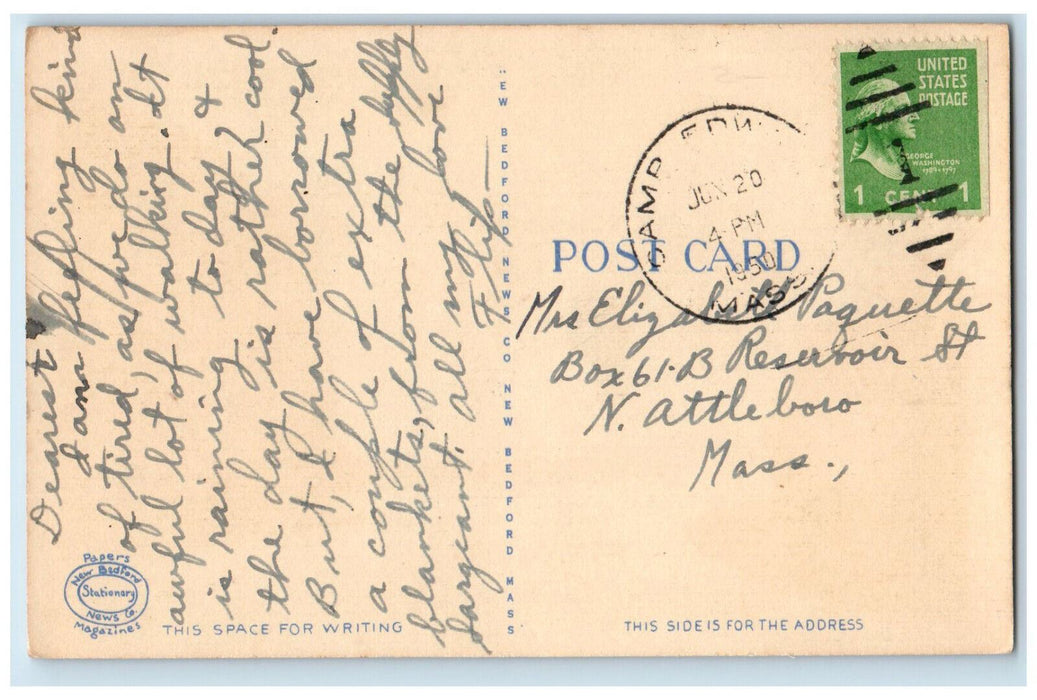 Dearest
I am feeling kind
of tired, as we do an
awful lot of walking. It
is raining to day, &
the day is rather cool.
But, I have borrowed
a couple of extra
blankets, from the supply
sargeant. all my love
Flip
EW BEDFORD NEWS CO NEW BEDFORD MASS
Papers
New Bedford
Stationery
News Co.
Magazines
THIS SPACE FOR WRITING
UNITED
STATES
POSTAGE
GEORGE
WASHINGTON
1789-1797
1 CENT 1
CAMP EDW
JUN 20
4 PM
1950
MASS
POST CARD
Mrs Elizabeth Paquette
Box 61-B Reservoir St
N. Attleboro
Mass.,
THIS SIDE IS FOR THE ADDRESS